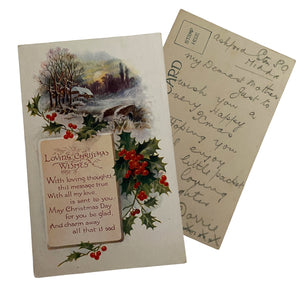 LOVING CHRISTMAS
WISHES
With loving thoughts
this message true
With all my love
is sent to you.
May Christmas Day
for you be glad
And charm away
all that is sad
STAMP
HERE
CARD
Ashford
P.O
My Dearest Mother
Just to
wish you a
very Happy
Xmas
Hoping you
enjoy
little packet